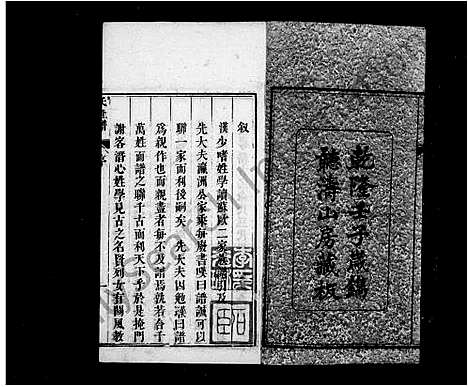 乾隆壬子歲鐫
聽濤山房藏板
叙
漢少嗜姓學讀蘇歐二家族譜引及
先大夫瀛洲公家乘每廢書嘆曰譜誠可以
聯一家而利後嗣矣 先大夫因勉漢曰譜
爲親作也而親盡者每不及譜爲孰若合千
萬姓而譜之聯千古而利天下乎於是掩門
謝客潛心姓學見古之名賢列女有關風教